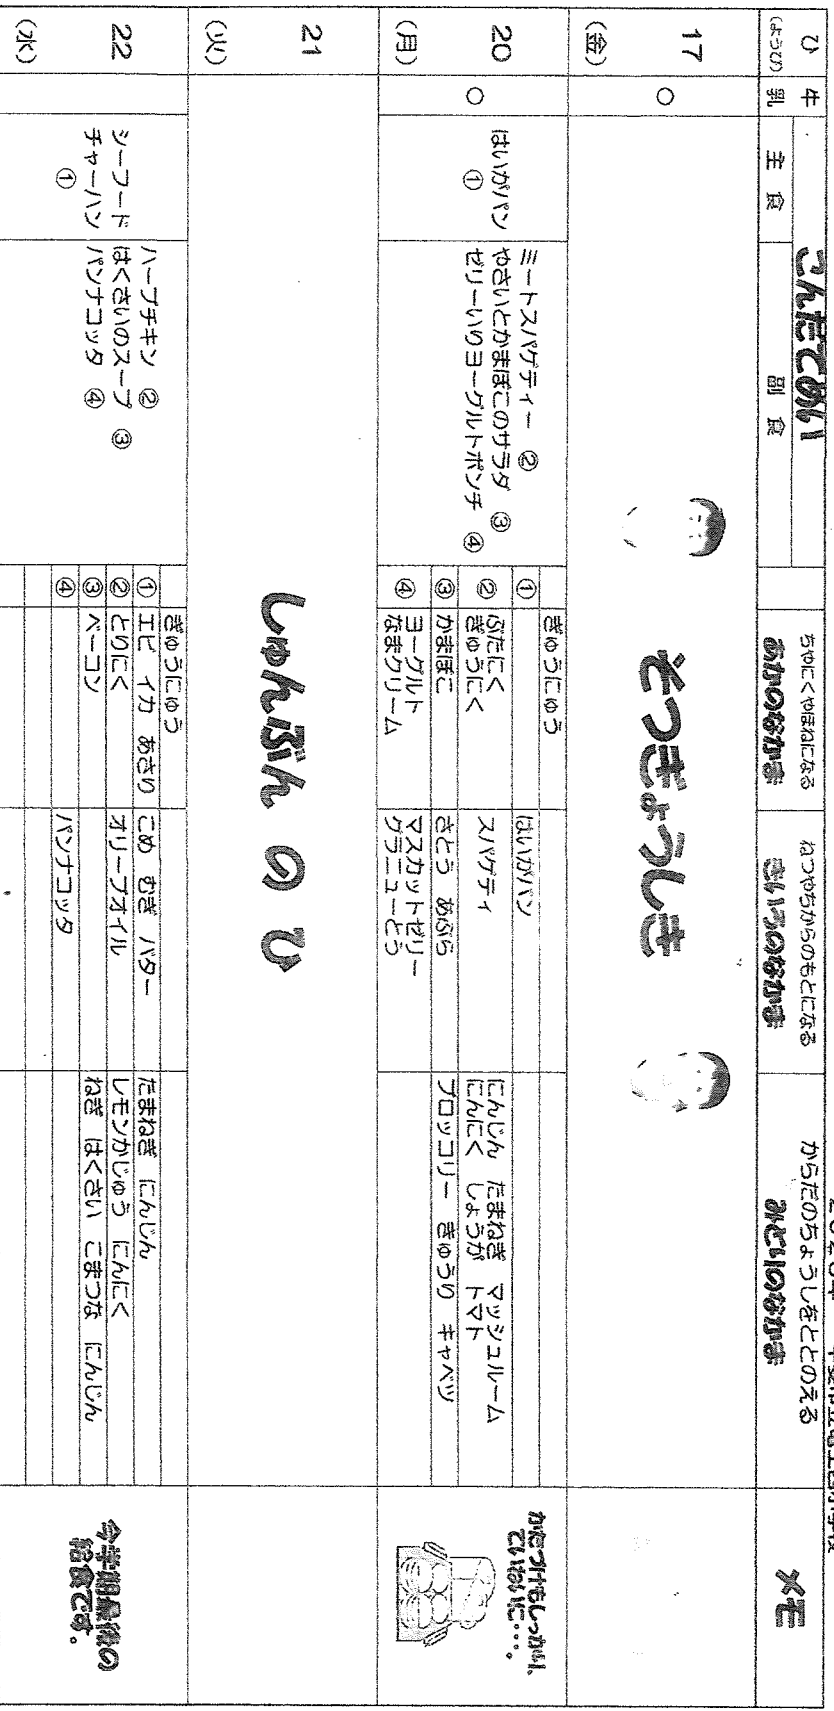 こんだてめい
ひ
(ようび)
牛
乳
主 食
副 食
ちやにくやほねになる
あかのなかま
ねつやちからのもとになる
きいろのなかま
からだのちょうしをととのえる
みどりのなかま
メモ
17
(金)
○
そつぎょうしき
20
(月)
○
はいがパン
①
ミートスパゲティー ②
やさいとかまぼこのサラダ ③
ゼリーいりヨーグルトポンチ ④
ぎゅうにゅう
① はいがパン
② ぶたにく
ぎゅうにく
スパゲティ
にんじん たまねぎ マッシュルーム
にんにく しょうが トマト
③ かまぼこ
さとう あぶら
ブロッコリー きゅうり キャベツ
④ ヨーグルト
なまクリーム
マスカットゼリー
グラニューとう
かたづけもしっかり、
ていねいに・・・。
21
(火)
しゅんぶん の ひ
22
(水)
シーフード
チャーハン
①
ハーブチキン ②
はくさいのスープ ③
パンナコッタ ④
ぎゅうにゅう
① エビ イカ あさり こめ むぎ バター たまねぎ にんじん
② とりにく オリーブオイル レモンかじゅう にんにく
③ ベーコン ねぎ はくさい こまつな にんじん
④ パンナコッタ
今学期最後の
給食です。